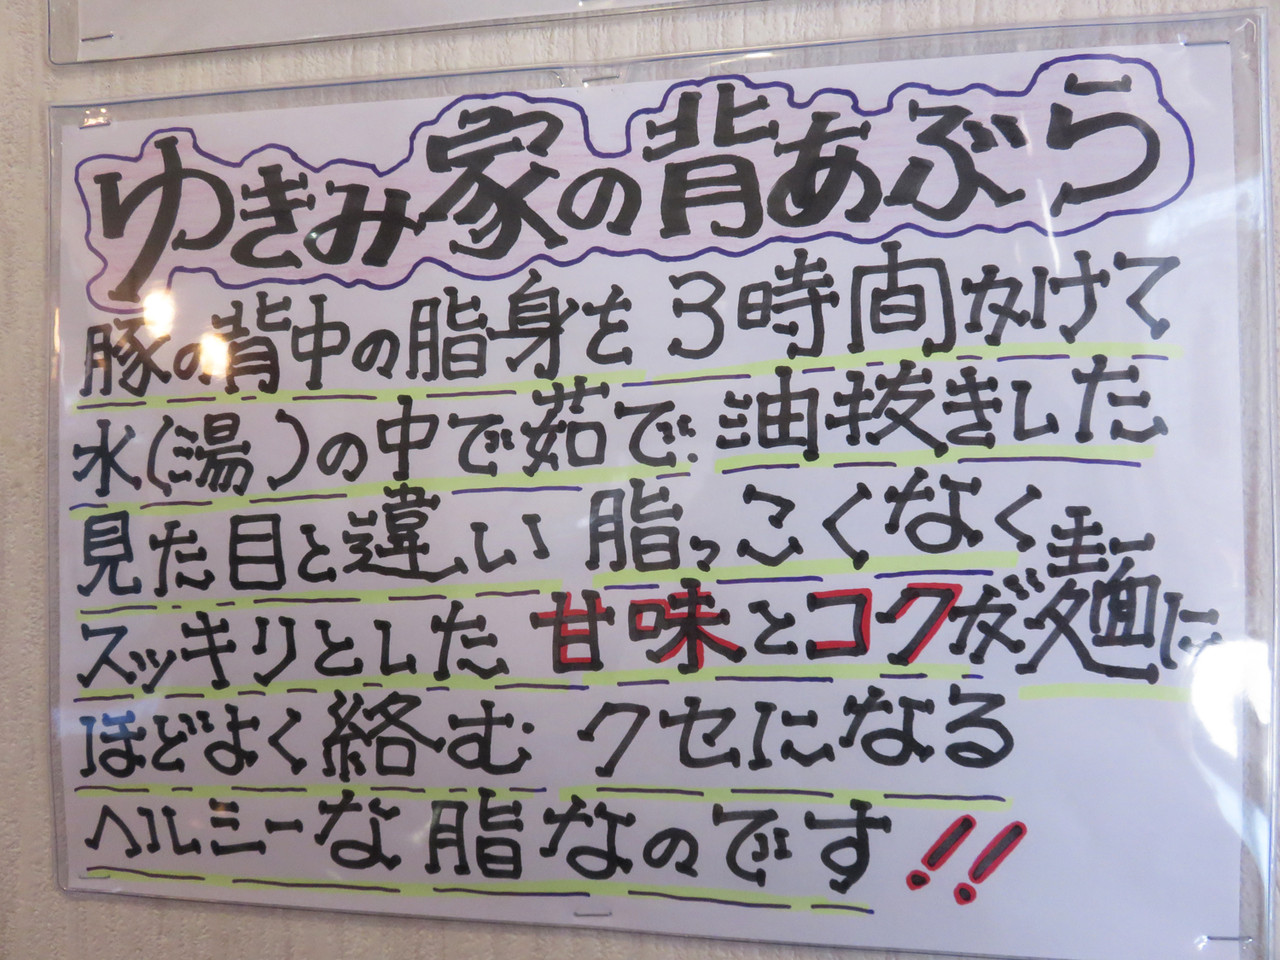 ゆきみ家の背あぶら
豚の背中の脂身を3時間かけて
水(湯)の中で茹で、油抜きした
見た目と違い 脂っこくなく
スッキリとした甘味とコクが麺に
ほどよく絡む クセになる
ヘルシーな脂なのです!!